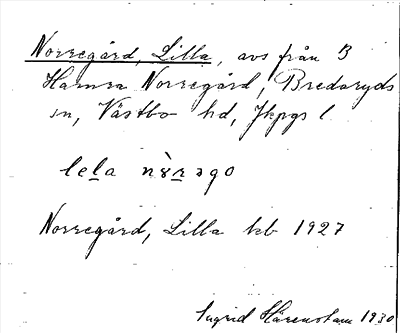 Norregård, Lilla, avs från B
Hamra Norregård, Bredaryds
sn, Västbo hd, Jkpgs l
lela nòrəgo
Norregård, Lilla kb 1927
Ingrid Härenstam 1930